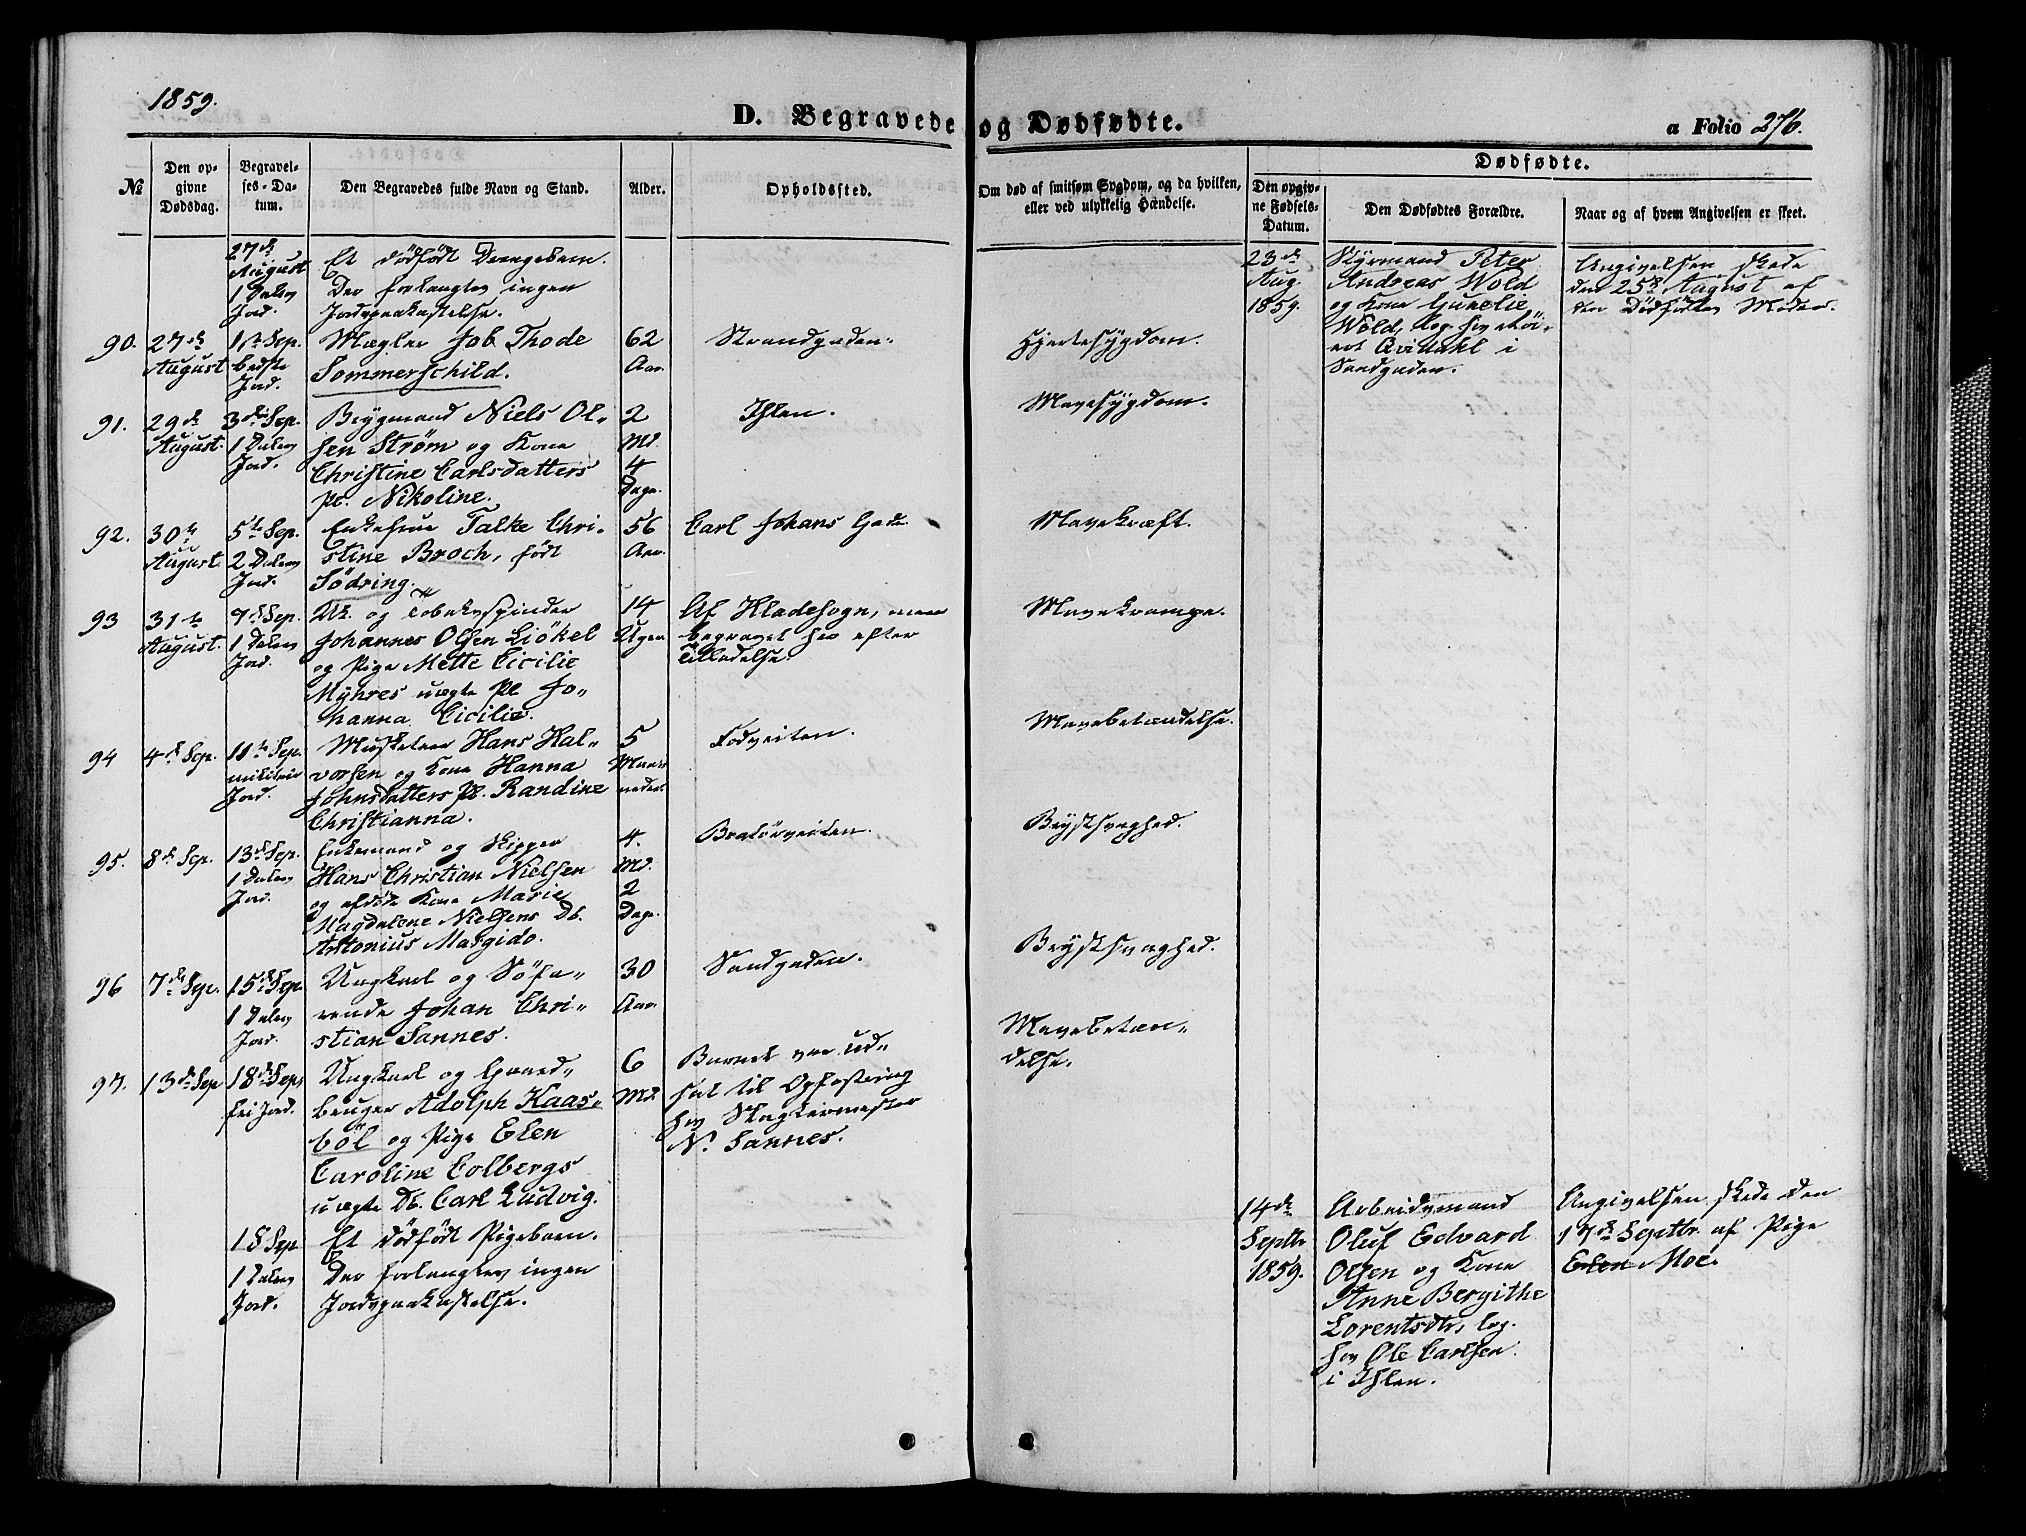 1859.
D. Begravede og Dødfødte.
a Folio 276.
No
Den op-
givne
Dødsdag.
Begravel-
ses-Da-
tum.
Den Begravedes fulde Navn og Stand.
Alder.
Opholdssted.
Om død af smitsom Sygdom, og da hvilken,
eller ved ulykkelig Hændelse.
Dødfødte.
Den opgiv-
ne Fødsels-
Datum.
Den Dødfødtes Forældre.
Naar og af hvem Angivelsen er skeet.
27de
August
1 Dalers
Jord.
Et dödfödt Drengebarn.
Der forlangtes ingen
Jordspaakastelse.
23de
Aug.
1859.
Styrmand Peter
Andreas Wold
og Kone Gunelie
Wold, log. hos
i
Sandgaden.
Angivelsen skede
den 25de August af
den Dödfödtes Moder.
90.
27de
August
1ste Sep.
bedste
Jord.
Mægler Job Thode
Sommerschild.
62
Aar.
Strandgaden.
Hjertesygdom.
91.
29de
August.
3die Sep.
1 Dalers
Jord.
Brygmand Niels Ol-
sen Strøm og Kone
Christine Carlsdatters
Pb. Nikoline.
2
Md.
4
Dage.
Ihlen.
Mavesygdom.
92.
30te
August
5te Sep.
2 Dalers
Jord.
Enkefrue Talke Chri-
stine Broch, född
Södring.
56
Aar.
Carl Johans Gade
Mavekræft.
93
31te
August.
7de Sep.
1 Dalers
Jord.
Uk. og Tobaksspinder
Johannes Olsen Ljökel
og Pige Mette Cicilie
Myhres uægte Pb. Jo-
hanna Cicilie.
14
Uger
Af Hladesogn, men
begravet her efter
Tilladelse.
Mavekrampe.
94
4de Sep.
10de Sep.
militair
Jord.
Musketeer Hans Hal-
vorsen og Kone Hanna
Johnsdatters Pb. Randine
Christianna.
5
Maa-
neder.
Fodveiten.
Mavebetændelse.
95.
8de Sep.
13de Sep.
1 Dalers
Jord.
Enkemand og Skipper
Hans Christian Nielsen
og afdöde Kone Marie
Magdalene Nielsens Db.
Antonius Margido.
4.
Md.
2
Dage.
Bratörveiten.
Brystsvaghed.
96
7de Sep.
15de Sep.
1 Dalers
Jord.
Ungkarl og Söfa-
rende Johan Chri-
stian Sannes.
30
Aar.
Sandgaden.
Brystsvaghed.
97.
13de Sep
18de Sep.
fri Jord.
Ungkarl og Gaard-
bruger Adolph Haas-
böl og Pige Elen
Caroline Colbergs
uægte Db. Carl Ludvig.
6
Md.
Barnet var ud-
sat til Opfostring
hos Slagtermester
N. Sannes.
Mavebetæn-
delse.
18 Sep
1 Dalers
Jord.
Et dödfödt Pigebarn.
Der forlangtes ingen
Jordspaakastelse.
14de
Septbr
1859.
Arbeidsmand
Oluf Edvard
Olsen og Kone
Anne Bergithe
Lorentsdtr, log.
hos Ole Carlsen
i Ihlen.
Angivelsen skede den
17de Septbr. af Pige
Elen Moe.